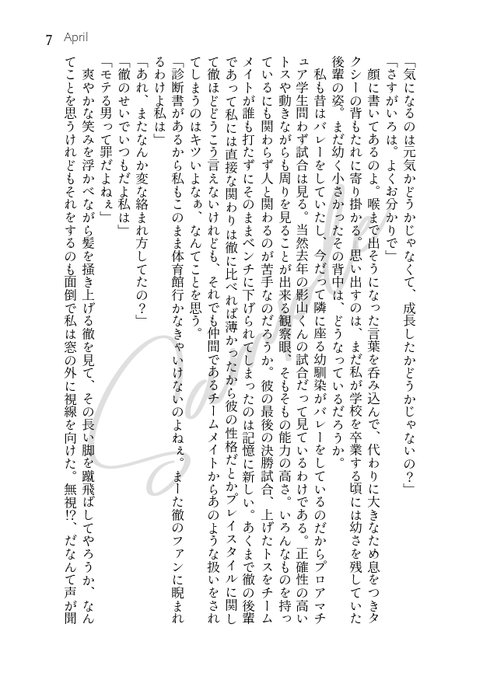 7 April
「気になるのは元気かどうかじゃなくて、成長したかどうかじゃないの？」
「さすがいろは。よくお分かりで」
　顔に書いてあるのよ。喉まで出そうになった言葉を呑み込んで、代わりに大きなため息をつきタ
クシーの背もたれに寄り掛かる。思い出すのは、まだ私が学校を卒業する頃には幼さを残していた
後輩の姿。まだ幼く小さかったその背中は、どうなっているだろうか。
　私も昔はバレーをしていたし、今だって隣に座る幼馴染がバレーをしているのだからプロアマチ
ュア学生問わず試合は見る。当然去年の影山くんの試合だって見ているわけである。正確性の高い
トスや動きながらも周りを見ることが出来る観察眼、そもそもの能力の高さ。いろんなものを持っ
ているにも関わらず人と関わるのが苦手なのだろうか。彼の最後の決勝試合、上げたトスをチーム
メイトが誰も打たずにそのままベンチに下げられてしまったのは記憶に新しい。あくまで徹の後輩
であって私には直接な関わりは徹に比べれば薄かったから彼の性格だとかプレイスタイルに関し
て徹ほどどうこう言えないけれども、それでも仲間であるチームメイトからあのような扱いをされ
てしまうのはキツいよなぁ、なんてことを思う。
「診断書があるから私もこのまま体育館行かなきゃいけないのよねぇ。まーた徹のファンに睨まれ
るわけよ私は」
「あれ、またなんか変な絡まれ方してたの？」
「徹のせいでいつもだよ私は」
「モテる男って罪だよねぇ」
　爽やかな笑みを浮かべながら髪を掻き上げる徹を見て、その長い脚を蹴飛ばしてやろうか、なん
てことを思うけれどもそれをするのも面倒で私は窓の外に視線を向けた。無視!?、だなんて声が聞
Sample